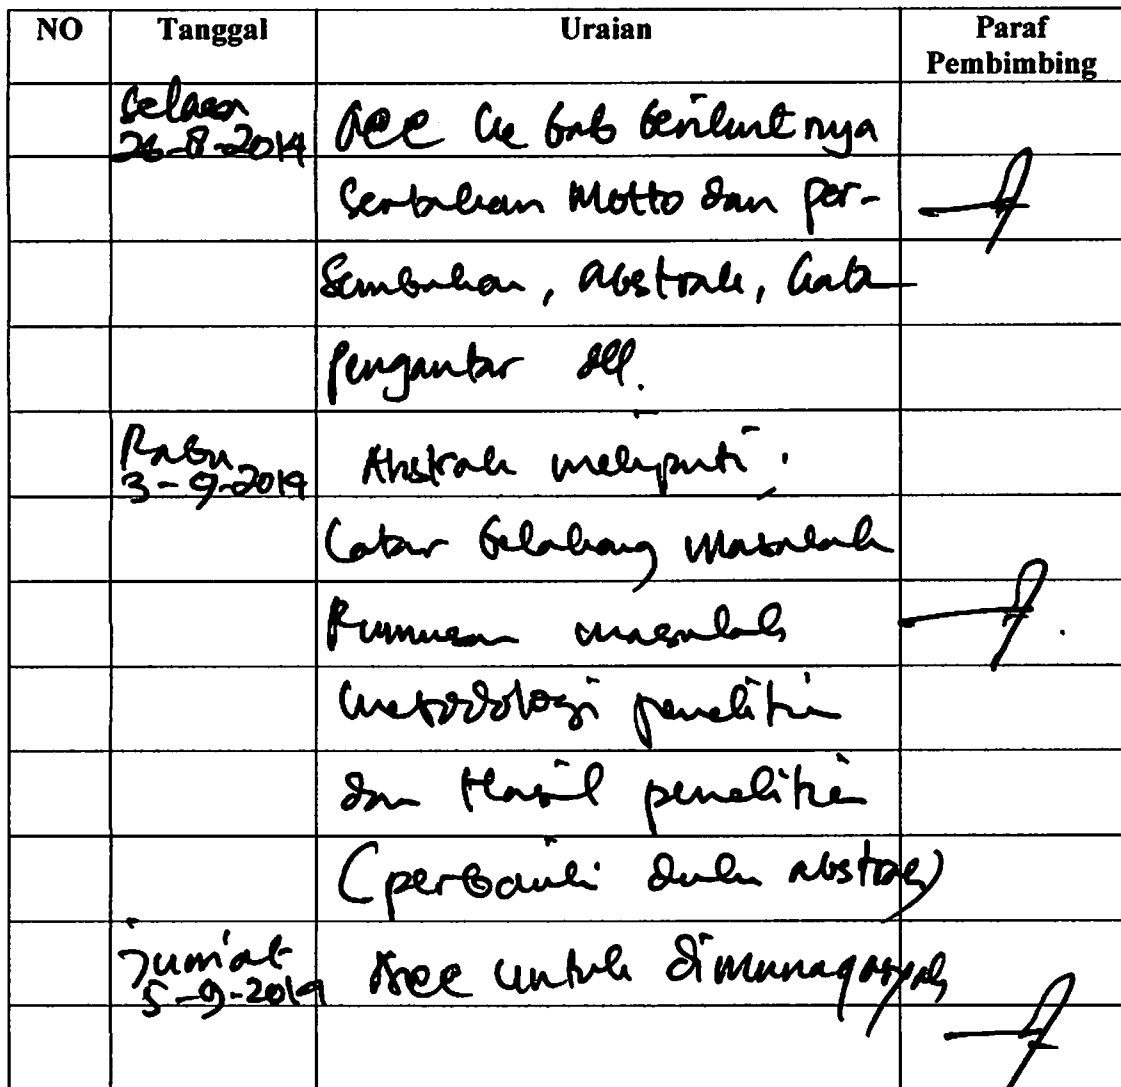 NO Tanggal Uraian Paraf Pembimbing
Selasa
26-8-2014
Acc ke bab berikutnya
Sertakan Motto dan per-
sembahan, abstrak, kata
pengantar dll.
Rabu
3-9-2014
Abstrak meliputi :
Latar belakang masalah
Rumusan masalah
metodologi penelitian
dan Hasil penelitian
(perbaiki dulu abstrak)
Jum'at
5-9-2014
Acc untuk dimunaqasyah